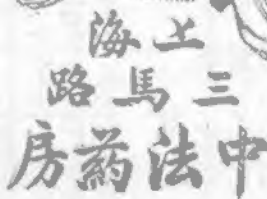 上海
三馬路
中法葯房